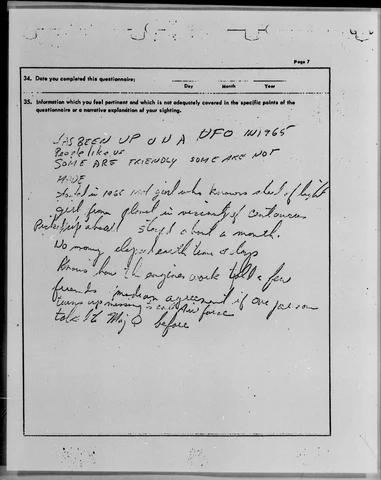 Page 7
34. Date you completed this questionnaire:
Day Month Year
35. Information which you feel pertinent and which is not adequately covered in the specific points of the
questionnaire or a narrative explanation of your sighting.
HAS BEEN UP ON A UFO IN 1965
People like us
SOME ARE FRIENDLY SOME ARE NOT
MADE
in 1965 met girl who knows of light
girl from planet in vicinity of
Picked up aboard stayed about a month.
No many elapsed earth time days
Knows how the engines work told a few
friends median agreement if one person
turns up missing Air force
talk to Maj Q before